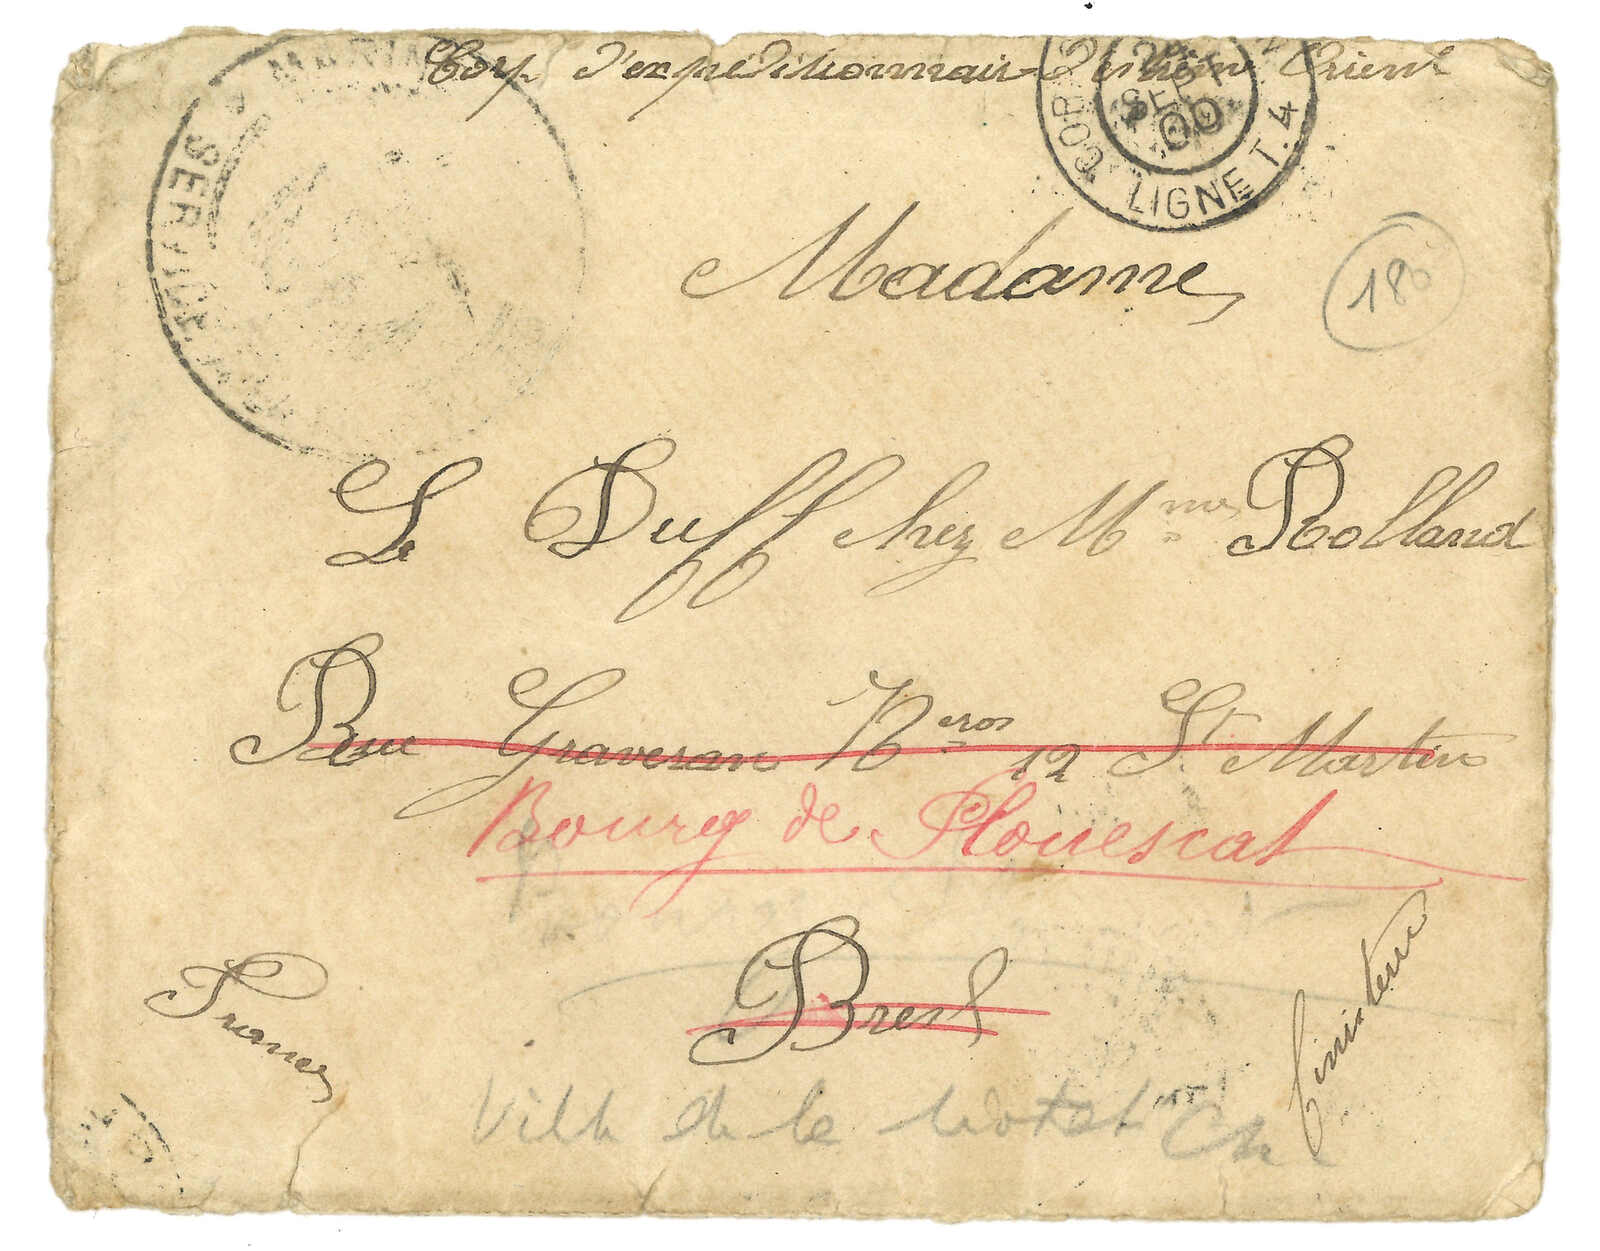 Corp d'expéditionnair Orient
MARIN
SERVICE
SEPT
00
LIGNE T. 4
Madame
180
Le Duff chez Mme Rolland
Rue Graveran Neros 12 St Martin
Bourg de Plouescat
Brest
France
Finistere